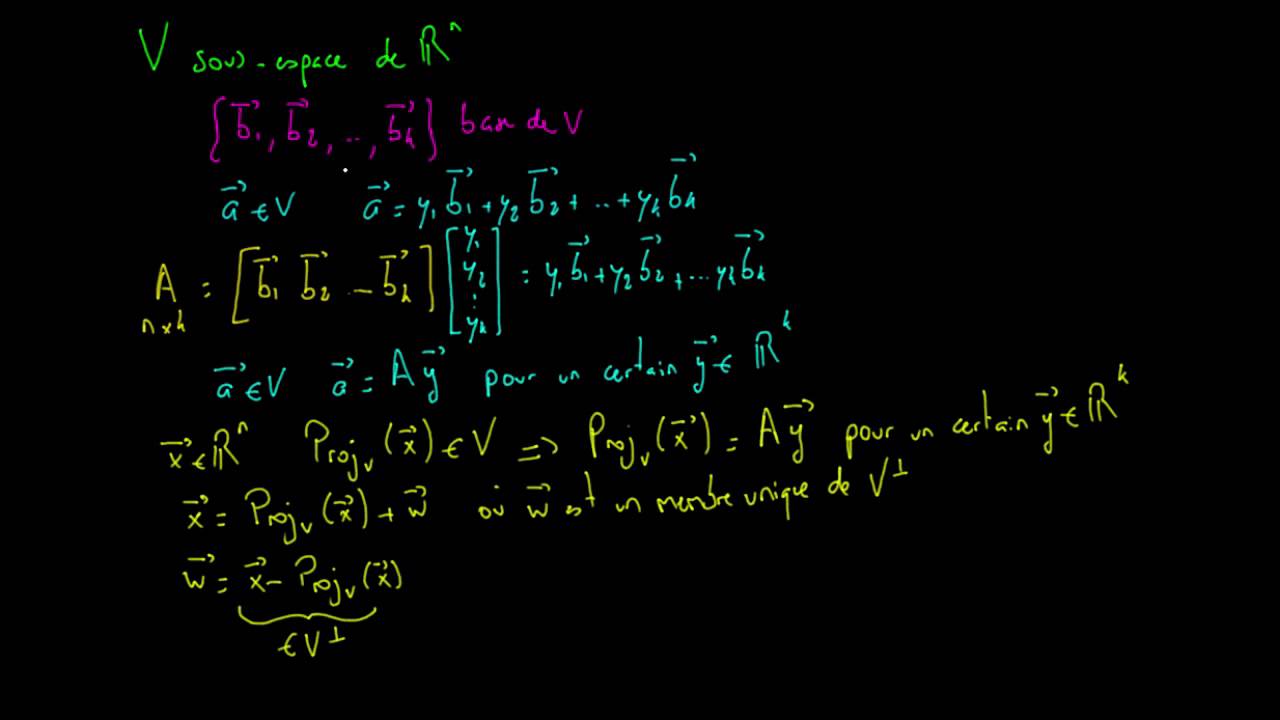 V sous-espace de ℝⁿ
{b⃗₁, b⃗₂, .., b⃗ₖ} base de V
a⃗ ∈ V a⃗ = y₁b⃗₁ + y₂b⃗₂ + ... + yₖb⃗ₖ
A = [b⃗₁ b⃗₂ _ b⃗ₖ] [y₁ y₂ ⋮ yₖ] = y₁b⃗₁ + y₂b⃗₂ + ... yₖb⃗ₖ
n×k
a⃗ ∈ V a⃗ = Ay⃗ pour un certain y⃗ ∈ ℝᵏ
x⃗ ∈ ℝⁿ Projᵥ(x⃗) ∈ V => Projᵥ(x⃗) = Ay⃗ pour un certain y⃗ ∈ ℝᵏ
x⃗ = Projᵥ(x⃗) + w⃗ où w⃗ est un membre unique de V⊥
w⃗ = x⃗ - Projᵥ(x⃗)
∈ V⊥